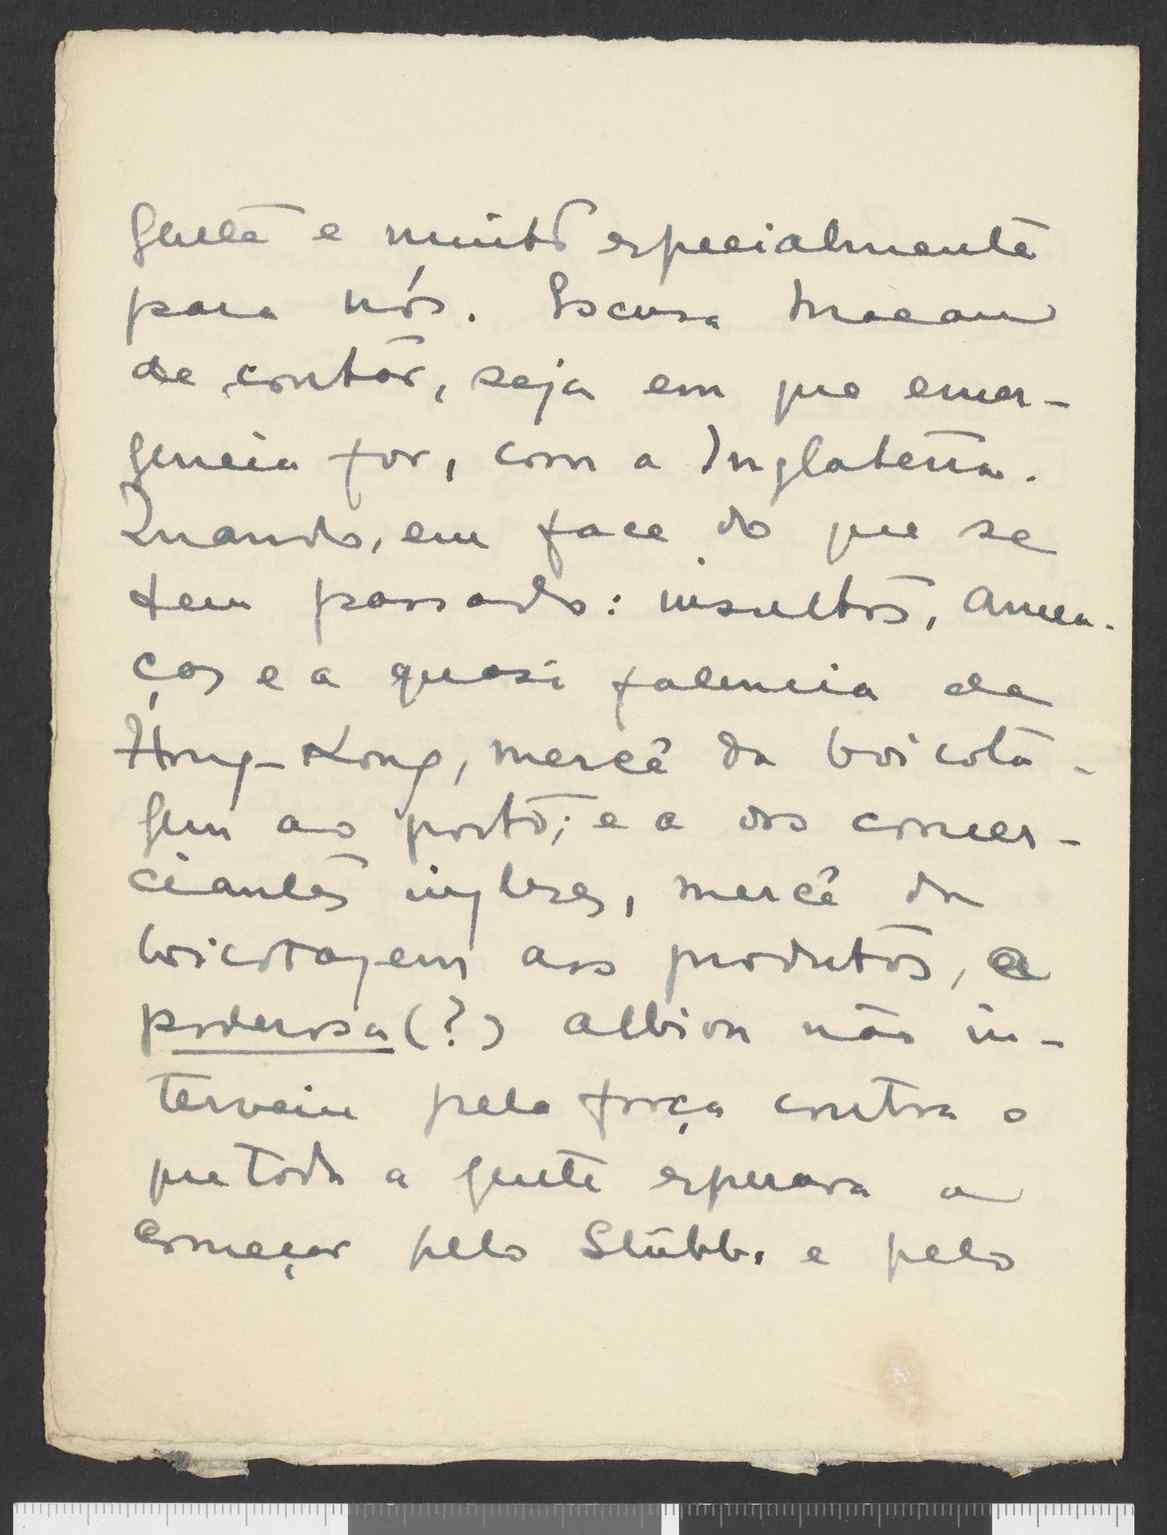 gente e muito especialmente
para nós. Escusa Macau
de contar, seja em que emer-
gencia for, com a Inglaterra.
Quando, em face do que se
tem passado: insultos, amea-
ços e a quasi falencia de
Hong-Kong, mercê da boicota-
gem ao porto; e a dos comer-
ciantes inglezes, mercê da
boicotagem aos produtos, a
poderosa (?) Albion não in-
terveiu pela força contra o
que toda a gente esperava a
começar pelo Stubbs e pelo